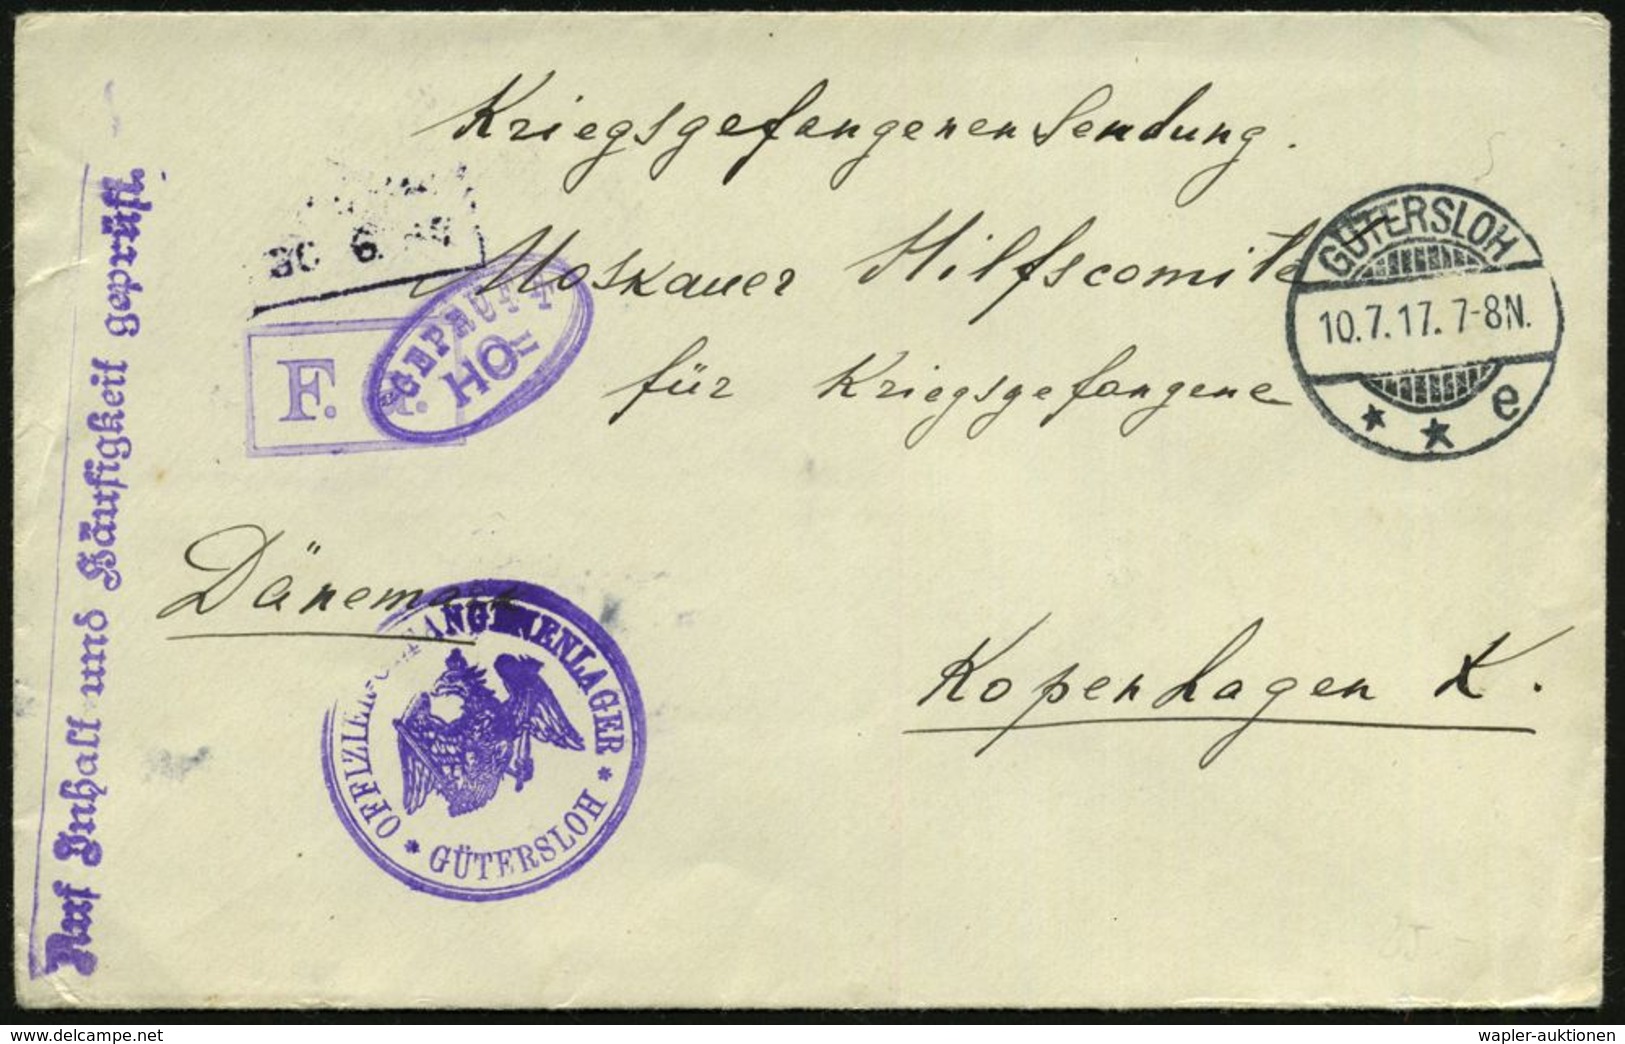 Kriegsgefangenensendung.
Moskauer Hilfscomité
für Kriegsgefangene
Dänemark
Kopenhagen K.
GÜTERSLOH
10.7.17. 7-8N.
* * e
F.
GEPRÜFT
HO
OFFIZIER-GEFANGENENLAGER
* GÜTERSLOH *
Auf Inhalt und Häufigkeit geprüft.
wapler-auktionen
www.delcampe.net